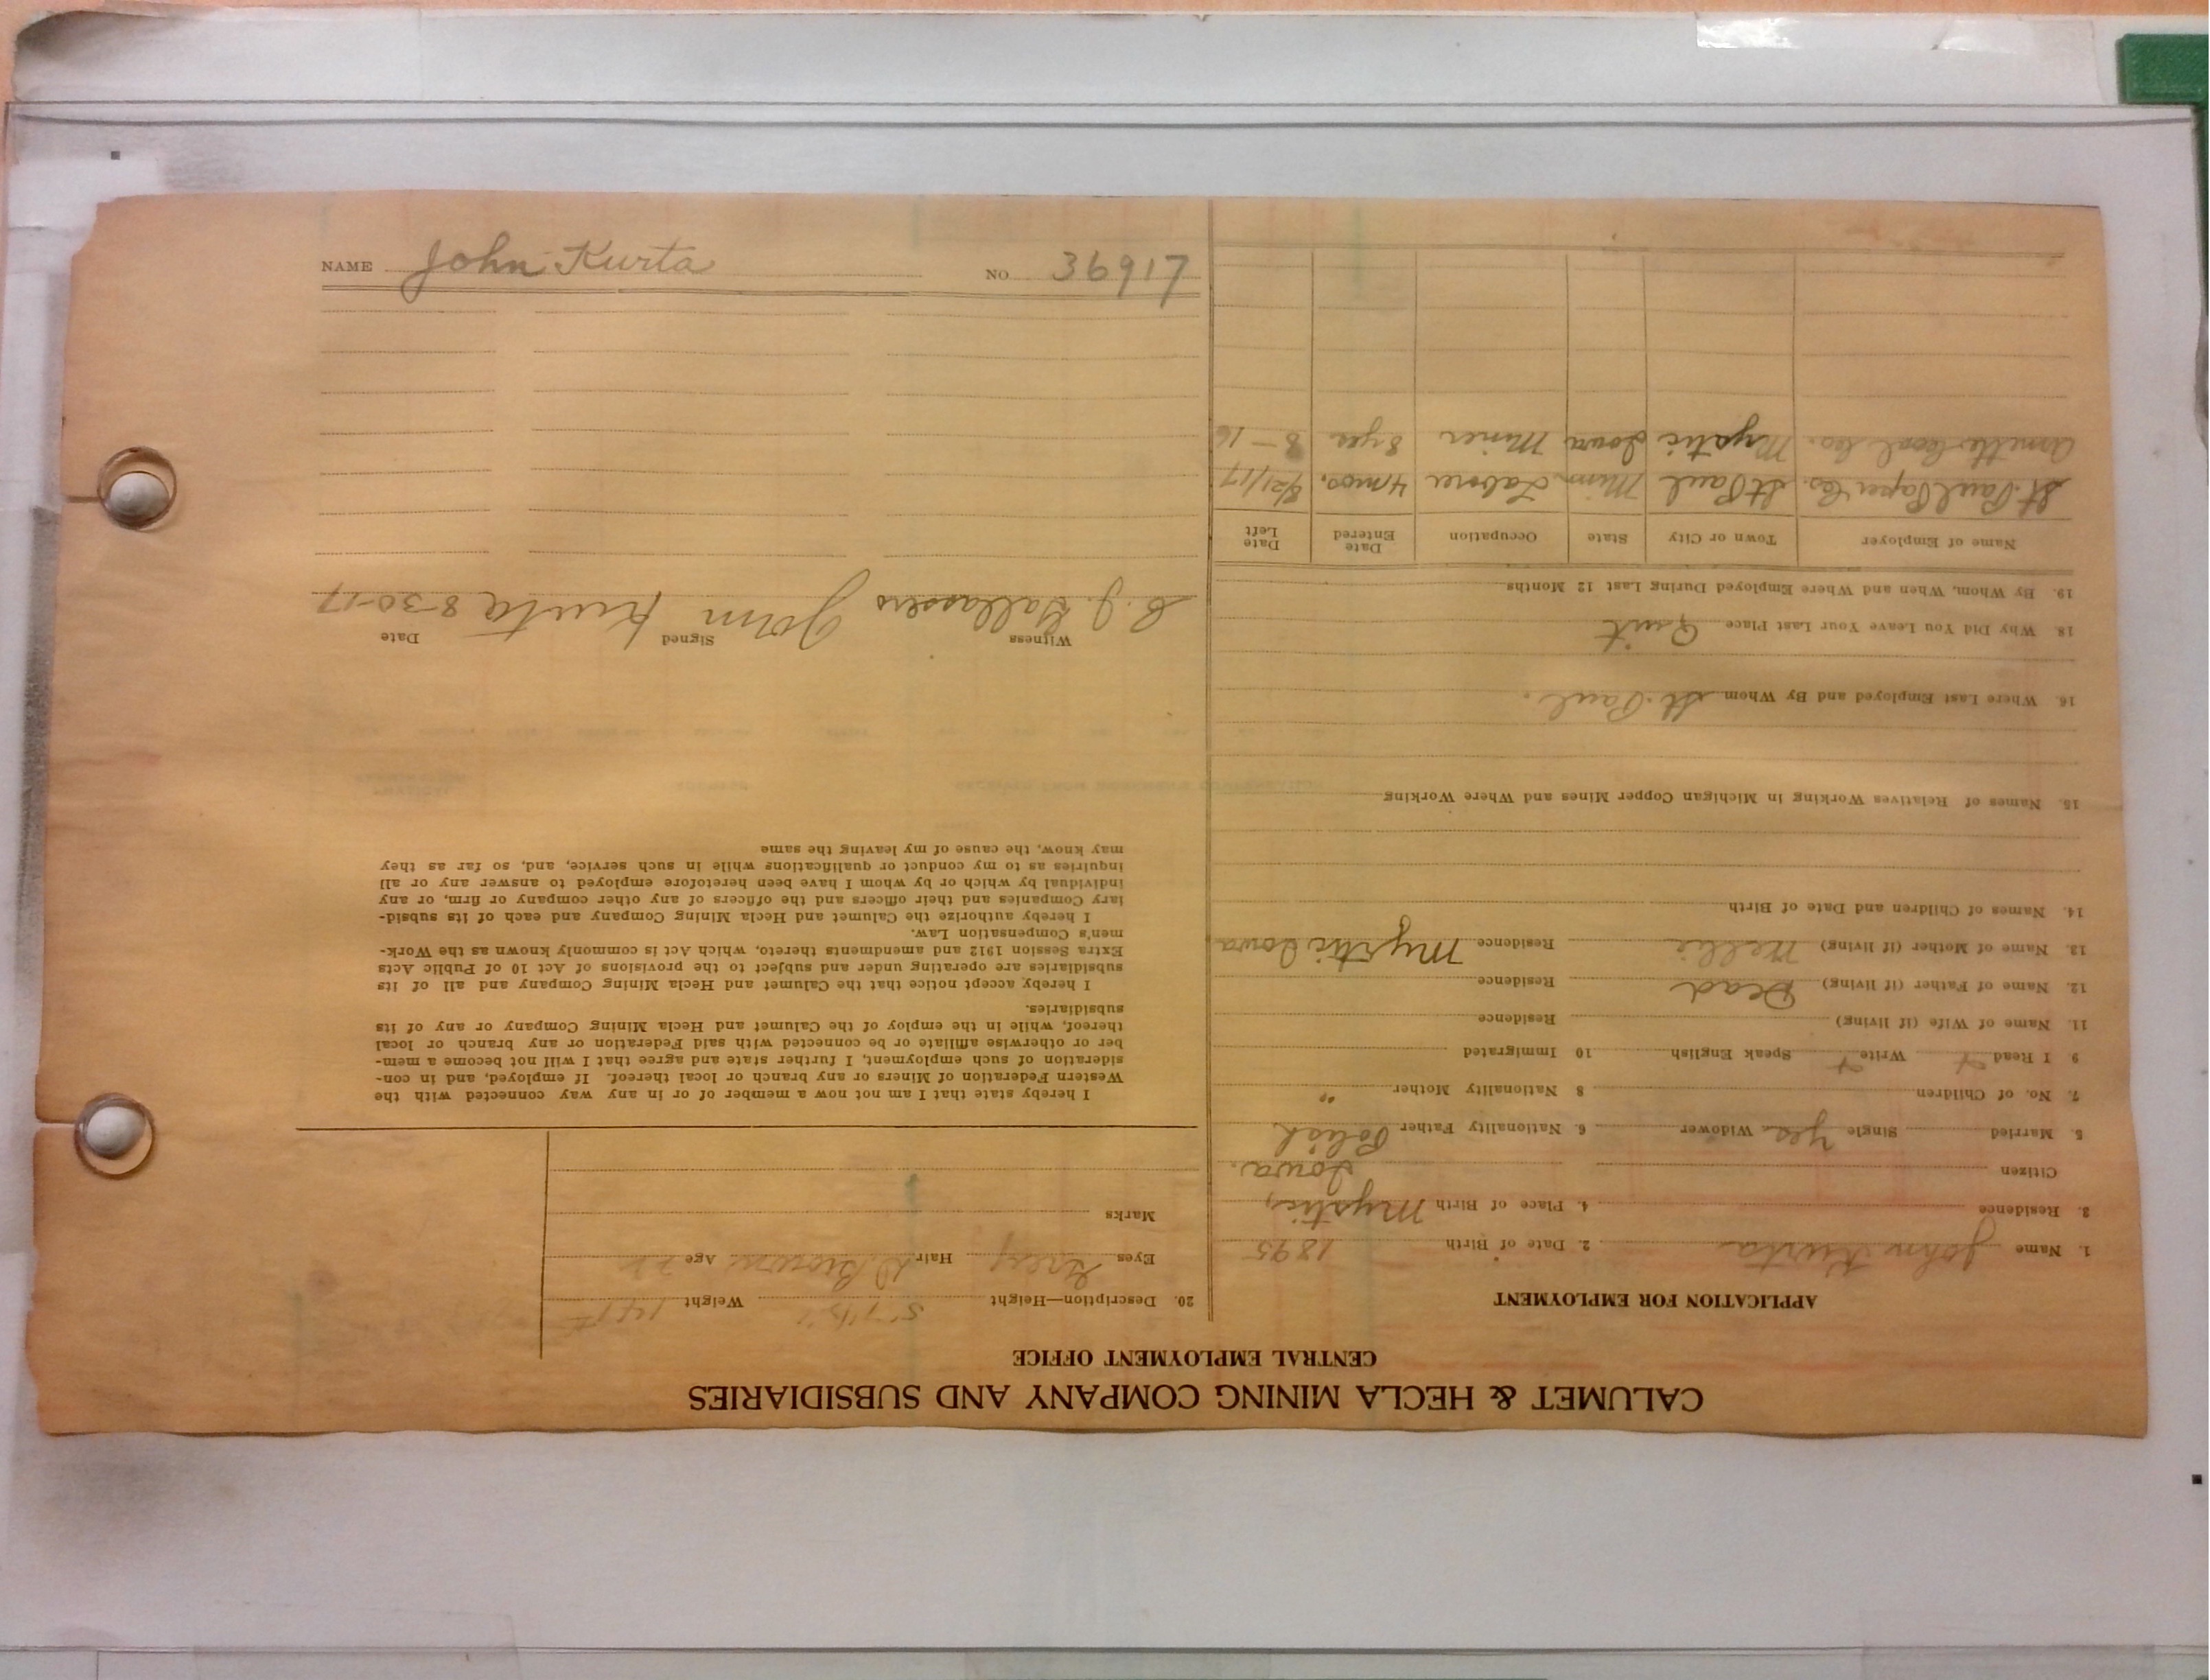 NAME John Kurta NO. 36917
CALUMET & HECLA MINING COMPANY AND SUBSIDIARIES
CENTRAL EMPLOYMENT OFFICE
APPLICATION FOR EMPLOYMENT
1. Name John Kurta 2. Date of Birth 1895
3. Residence 4. Place of Birth Mystic,
Citizen Iowa.
5. Married Single Yes Widower 6. Nationality Father Polish
7. No. of Children 8 Nationality Mother "
9 I Read Write Speak English 10 Immigrated
11. Name of Wife (if living) Residence
12. Name of Father (if living) Dead Residence
13. Name of Mother (if living) Mellie Residence Mystic Iowa
14. Names of Children and Date of Birth
15. Names of Relatives Working in Michigan Copper Mines and Where Working
16. Where Last Employed and By Whom St. Paul.
18. Why Did You Leave Your Last Place Quit
19. By Whom, When and Where Employed During Last 12 Months
Name of Employer Town or City State Occupation Date Entered Date Left
St. Paul Paper Co. St Paul Minn Laborer 4 mos. 8/21/17
Coal Co. Mystic Iowa Miner 8 yrs 8-16
20. Description—Height Weight
Eyes Grey Hair D. Brown Age 22
Marks
I hereby state that I am not now a member of or in any way connected with the
Western Federation of Miners or any branch or local thereof. If employed, and in con-
sideration of such employment, I further state and agree that I will not become a mem-
ber or otherwise affiliate or be connected with said Federation or any branch or local
thereof, while in the employ of the Calumet and Hecla Mining Company or any of its
subsidiaries.
I hereby accept notice that the Calumet and Hecla Mining Company and all of its
subsidiaries are operating under and subject to the provisions of Act 10 of Public Acts
Extra Session 1912 and amendments thereto, which Act is commonly known as the Work-
men's Compensation Law.
I hereby authorize the Calumet and Hecla Mining Company and each of its subsid-
iary Companies and their officers and the officers of any other company or firm, or any
individual by which or by whom I have been heretofore employed to answer any or all
inquiries as to my conduct or qualifications while in such service, and, so far as they
may know, the cause of my leaving the same
Witness Signed Date
John Kurta 8-30-17